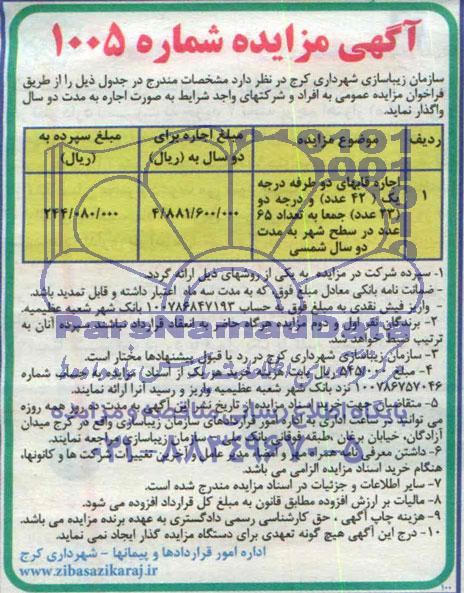 آگهی مزایده شماره ۱۰۰۵
سازمان زیباسازی شهرداری کرج در نظر دارد مشخصات مندرج در جدول ذیل را از طریق
فراخوان مزایده عمومی به افراد و شرکتهای واجد شرایط به صورت اجاره به مدت دو سال
واگذار نماید.
ردیف موضوع مزایده مبلغ اجاره برای دو سال به (ریال) مبلغ سپرده به (ریال)
۱ اجاره قابهای دو طرفه درجه یک ( ۴۲ عدد) و درجه دو (۲۳ عدد) جمعا به تعداد ۶۵ عدد در سطح شهر به مدت دو سال شمسی ۴/۸۸۱/۶۰۰/۰۰۰ ۲۴۴/۰۸۰/۰۰۰
۱- سپرده شرکت در مزایده به یکی از روشهای ذیل ارائه گردد.
- ضمانت نامه بانکی معادل مبلغ فوق که به مدت سه ماه اعتبار داشته و قابل تمدید باشد.
- واریز فیش نقدی به مبلغ فوق به حساب ۱۰۰۷۸۶۸۴۷۱۹۳ بانک شهر شعبه عظیمیه.
۲- برندگان نفر اول و دوم مزایده هرگاه حاضر به انعقاد قرارداد نباشند سپرده آنان به
ترتیب ضبط خواهد شد.
۳- سازمان زیباسازی شهرداری کرج در رد یا قبول پیشنهادها مختار است.
۴- مبلغ ۵۴۵/۰۰۰ ریال بابت هزینه خرید هر یک از اسناد مزایده به حساب شماره
۱۰۰۷۸۶۷۵۷۰۴۶ نزد بانک شهر شعبه عظیمیه واریز و رسید آنرا ارائه نمایند.
۵- متقاضیان جهت خرید اسناد مزایده از تاریخ نشر این آگهی روز همه روزه
می توانند در ساعت اداری به اداره امور قراردادهای سازمان زیباسازی واقع در کرج میدان
آزادگان، خیابان طبقه فوقانی بانک ملی سازمان زیباسازی مراجعه نمایند.
۶- داشتن معرفی نامه تغییرات شرکت ها و کانونها،
هنگام خرید اسناد مزایده الزامی می باشد.
۷- سایر اطلاعات و جزئیات در اسناد مزایده مندرج شده است.
۸- مالیات بر ارزش افزوده مطابق قانون به مبلغ کل قرارداد افزوده می شود.
۹- هزینه چاپ آگهی ، حق کارشناسی رسمی دادگستری به عهده برنده مزایده می باشد.
۱۰- درج این آگهی هیچ گونه تعهدی برای دستگاه مزایده گذار ایجاد نمی نماید.
اداره امور قراردادها و پیمانها - شهرداری کرج
www.zibasazikaraj.ir
ParsNamadData
پایگاه اطلاع رسانی مناقصه و مزایده
۰۲۱-۸۸۳۴۹۶۷۰-۵
۱۰۰